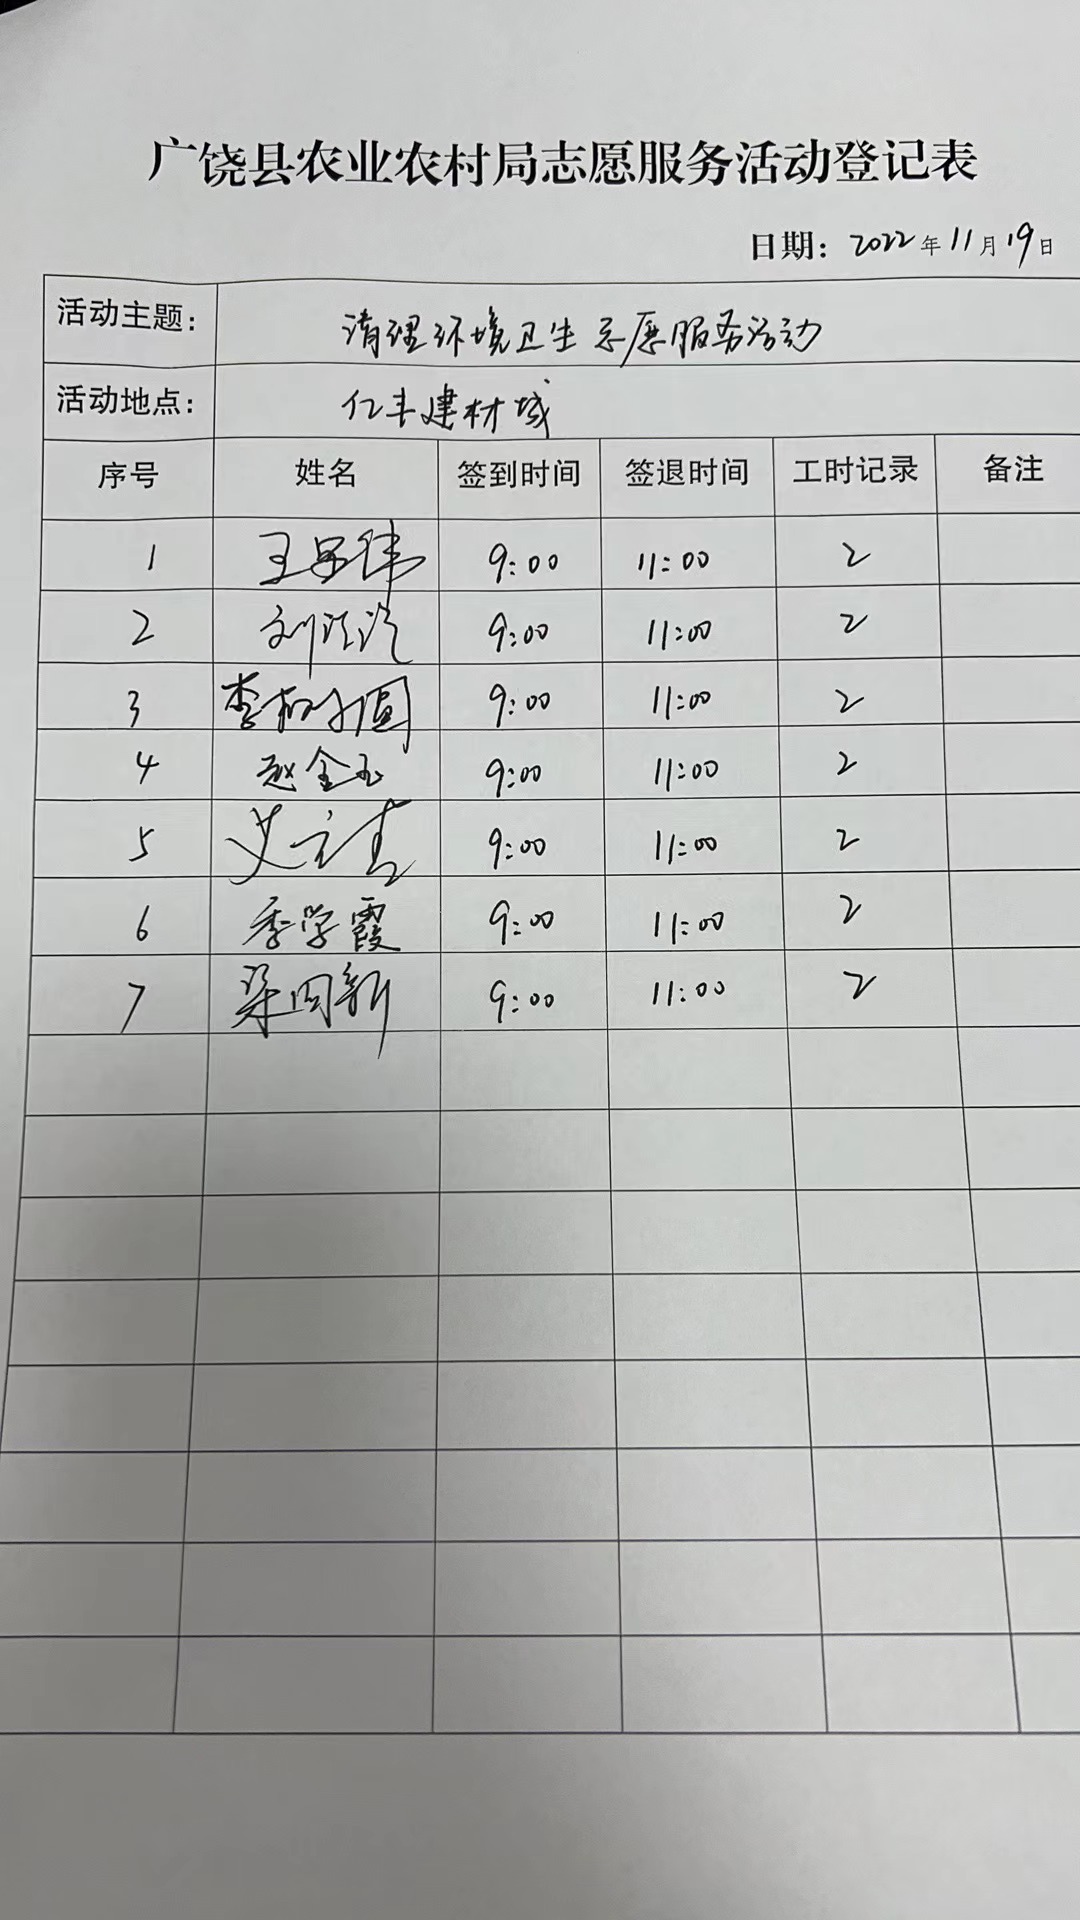 广饶县农业农村局志愿服务活动登记表
日期: 2022年11月19日
活动主题: 清理环境卫生志愿服务活动
活动地点: 亿丰建材城
序号 姓名 签到时间 签退时间 工时记录 备注
1 9:00 11:00 2
2 9:00 11:00 2
3 9:00 11:00 2
4 赵金玉 9:00 11:00 2
5 9:00 11:00 2
6 季学霞 9:00 11:00 2
7 9:00 11:00 2